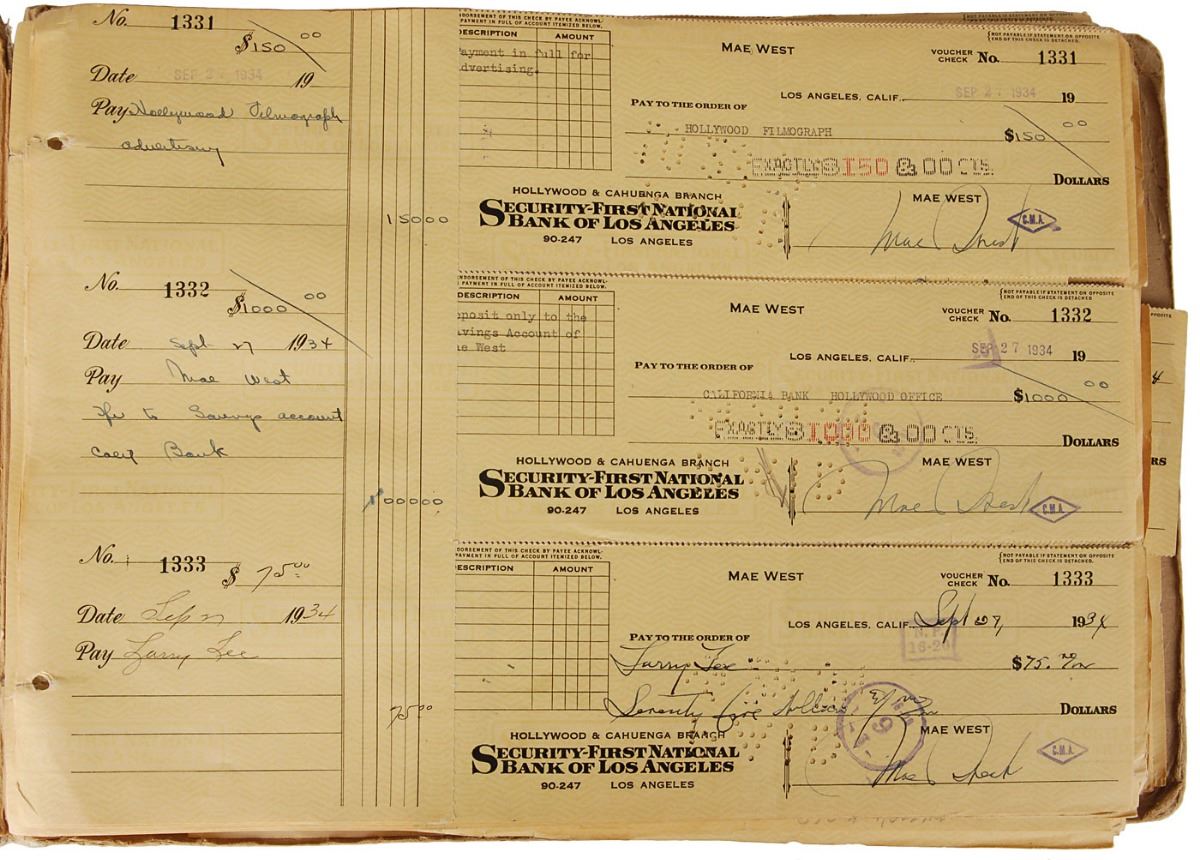 No. 1331
$150 00
Date SEP 27 1934 19
Pay Hollywood Filmograph
advertising
150 00
No. 1332
$1000 00
Date Sept 27 1934
Pay Mae West
to Savings account
Bank
1000 00
No. 1333 $ 75 00
Date Sep 27 1934
Pay Larry Lee
75 00
ENDORSEMENT OF THIS CHECK BY PAYEE ACKNOWL-
PAYMENT IN FULL OF ACCOUNT ITEMIZED BELOW.
ESCRIPTION AMOUNT
ayment in full for
dvertising.
(NOT PAYABLE IF STATEMENT ON OPPOSITE
END OF THIS CHECK IS DETACHED.
MAE WEST
VOUCHER
CHECK No. 1331
LOS ANGELES, CALIF., SEP 27 1934 19
PAY TO THE ORDER OF
HOLLYWOOD FILMOGRAPH $150 00
EXACTLY $150 & 00 CTS.
DOLLARS
HOLLYWOOD & CAHUENGA BRANCH
SECURITY-FIRST NATIONAL
BANK OF LOS ANGELES
90-247 LOS ANGELES
MAE WEST
Mae West
C.M.A.
NDORSEMENT OF THIS CHECK BY PAYEE ACKNOWL-
PAYMENT IN FULL OF ACCOUNT ITEMIZED BELOW.
ESCRIPTION AMOUNT
eposit only to the
avings Account of
ae West
(NOT PAYABLE IF STATEMENT ON OPPOSITE
END OF THIS CHECK IS DETACHED
MAE WEST
VOUCHER
CHECK No. 1332
LOS ANGELES, CALIF., SEP 27 1934 19
PAY TO THE ORDER OF
CALIFORNIA BANK HOLLYWOOD OFFICE $1000 00
EXACTLY $1000 & 00 CTS.
DOLLARS
HOLLYWOOD & CAHUENGA BRANCH
SECURITY-FIRST NATIONAL
BANK OF LOS ANGELES
90-247 LOS ANGELES
MAE WEST
Mae West
C.M.A.
DORSEMENT OF THIS CHECK BY PAYEE ACKNOWL-
PAYMENT IN FULL OF ACCOUNT ITEMIZED BELOW.
ESCRIPTION AMOUNT
(NOT PAYABLE IF STATEMENT ON OPPOSITE
END OF THIS CHECK IS DETACHED.
MAE WEST
VOUCHER
CHECK No. 1333
LOS ANGELES, CALIF., Sept 27, 1934
PAY TO THE ORDER OF
Larry Lee $75.
Seventy Five Dollars
DOLLARS
HOLLYWOOD & CAHUENGA BRANCH
SECURITY-FIRST NATIONAL
BANK OF LOS ANGELES
90-247 LOS ANGELES
MAE WEST
Mae West
C.M.A.